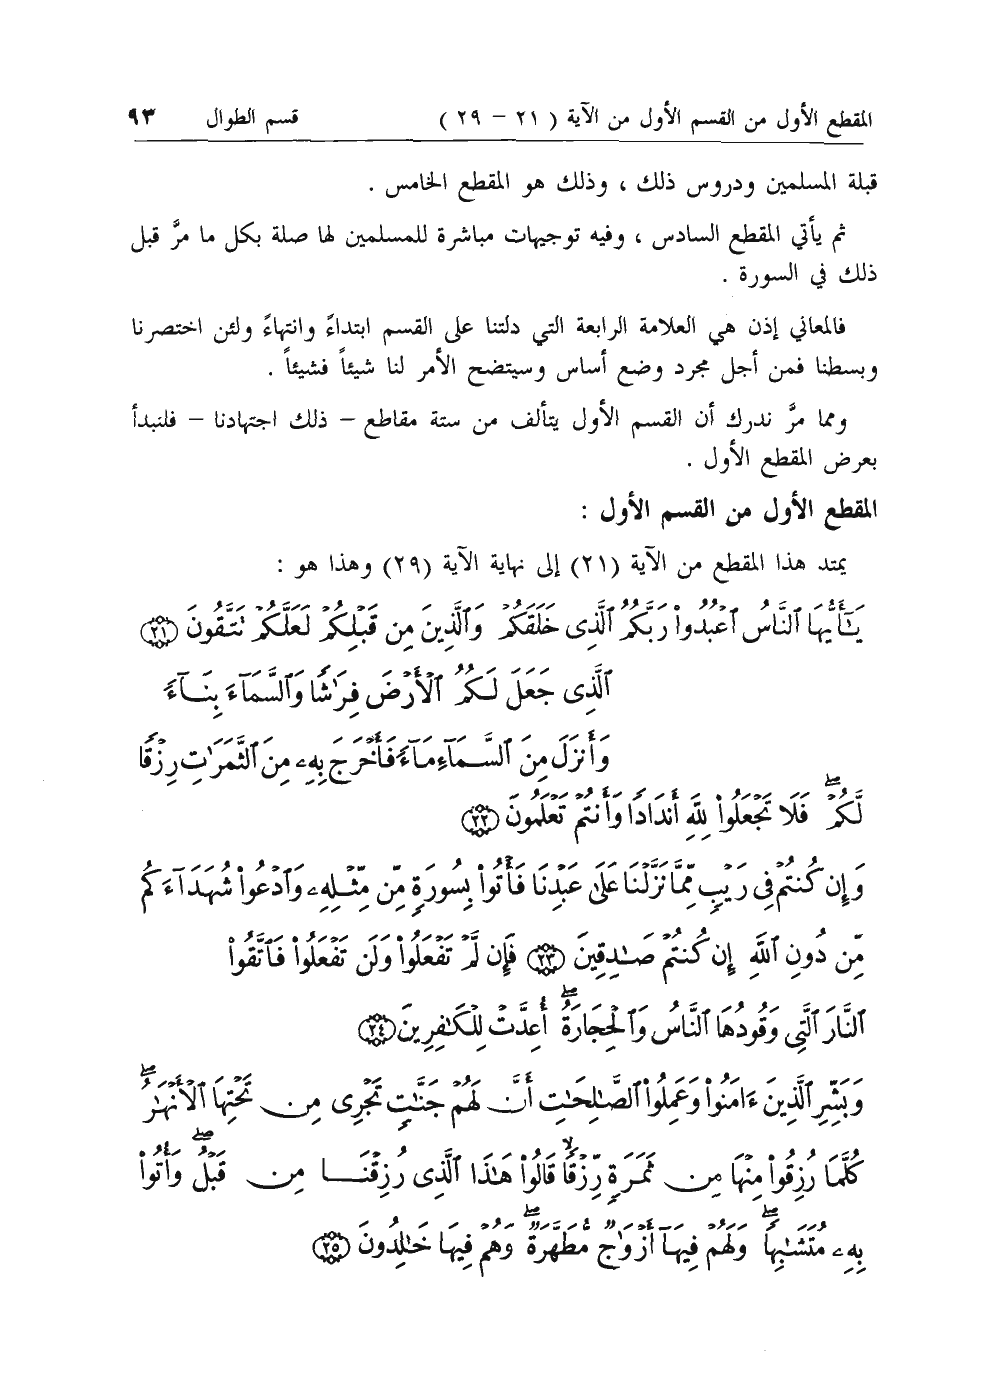 المقطع الأول من القسم الأول من الآية ( ٢١ – ٢٩ ) قسم الطوال ٩٣
قبلة المسلمين ودروس ذلك ، وذلك هو المقطع الخامس .
ثم يأتي المقطع السادس ، وفيه توجيهات مباشرة للمسلمين لها صلة بكل ما مرَّ قبل
ذلك في السورة .
فالمعاني إذن هي العلامة الرابعة التي دلتنا على القسم ابتداءً وانتهاءً ولئن اختصرنا
وبسطنا فمن أجل مجرد وضع أساس وسيتضح الأمر لنا شيئاً فشيئاً .
ومما مرَّ ندرك أن القسم الأول يتألف من ستة مقاطع – ذلك اجتهادنا – فلنبدأ
بعرض المقطع الأول .
المقطع الأول من القسم الأول :
يمتد هذا المقطع من الآية (٢١) إلى نهاية الآية (٢٩) وهذا هو :
يَـٰٓأَيُّهَا ٱلنَّاسُ ٱعْبُدُوا۟ رَبَّكُمُ ٱلَّذِى خَلَقَكُمْ وَٱلَّذِينَ مِن قَبْلِكُمْ لَعَلَّكُمْ تَتَّقُونَ ﴿٢١﴾
ٱلَّذِى جَعَلَ لَكُمُ ٱلْأَرْضَ فِرَٰشًا وَٱلسَّمَآءَ بِنَآءً
وَأَنزَلَ مِنَ ٱلسَّمَآءِ مَآءً فَأَخْرَجَ بِهِۦ مِنَ ٱلثَّمَرَٰتِ رِزْقًا
لَّكُمْ ۖ فَلَا تَجْعَلُوا۟ لِلَّهِ أَندَادًا وَأَنتُمْ تَعْلَمُونَ ﴿٢٢﴾
وَإِن كُنتُمْ فِى رَيْبٍ مِّمَّا نَزَّلْنَا عَلَىٰ عَبْدِنَا فَأْتُوا۟ بِسُورَةٍ مِّن مِّثْلِهِۦ وَٱدْعُوا۟ شُهَدَآءَكُم
مِّن دُونِ ٱللَّهِ إِن كُنتُمْ صَـٰدِقِينَ ﴿٢٣﴾ فَإِن لَّمْ تَفْعَلُوا۟ وَلَن تَفْعَلُوا۟ فَٱتَّقُوا۟
ٱلنَّارَ ٱلَّتِى وَقُودُهَا ٱلنَّاسُ وَٱلْحِجَارَةُ ۖ أُعِدَّتْ لِلْكَـٰفِرِينَ ﴿٢٤﴾
وَبَشِّرِ ٱلَّذِينَ ءَامَنُوا۟ وَعَمِلُوا۟ ٱلصَّـٰلِحَـٰتِ أَنَّ لَهُمْ جَنَّـٰتٍ تَجْرِى مِن تَحْتِهَا ٱلْأَنْهَـٰرُ ۖ
كُلَّمَا رُزِقُوا۟ مِنْهَا مِن ثَمَرَةٍ رِّزْقًا ۙ قَالُوا۟ هَـٰذَا ٱلَّذِى رُزِقْنَا مِن قَبْلُ ۖ وَأُتُوا۟
بِهِۦ مُتَشَـٰبِهًا ۖ وَلَهُمْ فِيهَآ أَزْوَٰجٌ مُّطَهَّرَةٌ ۖ وَهُمْ فِيهَا خَـٰلِدُونَ ﴿٢٥﴾